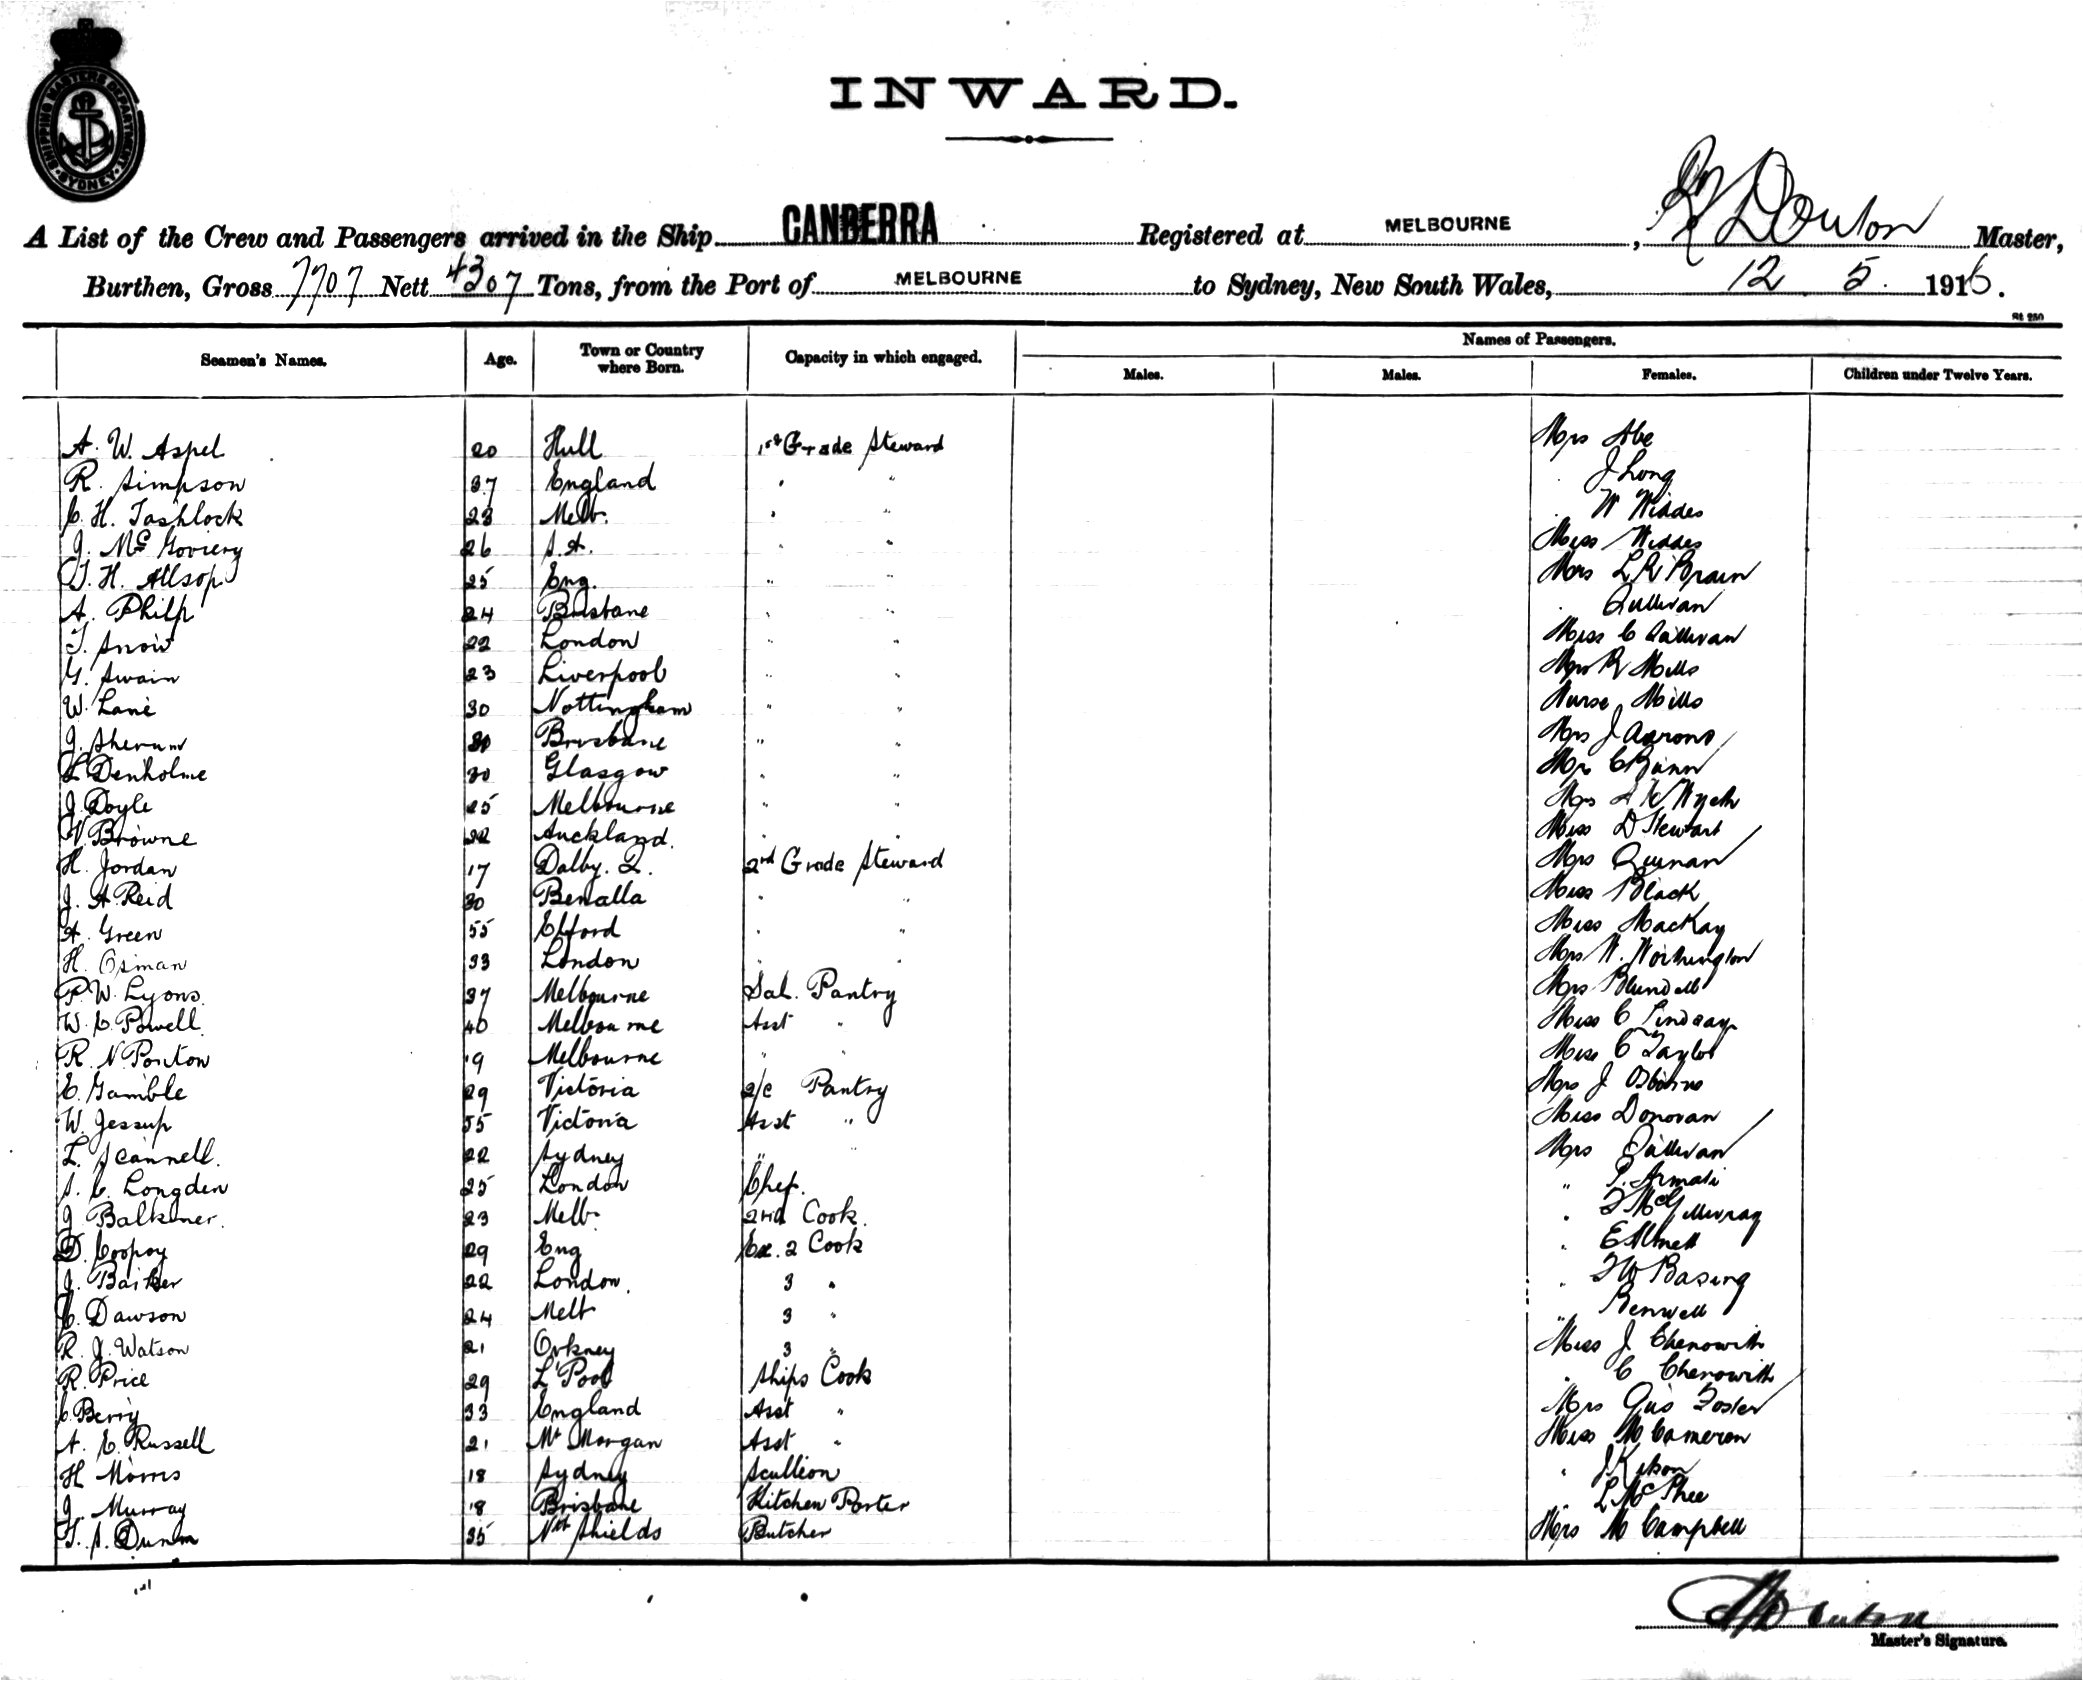 SHIPPING MASTERS DEPARTMENT SYDNEY
INWARD.
A List of the Crew and Passengers arrived in the Ship CANBERRA Registered at MELBOURNE, Master,
Burthen, Gross 7707 Nett 4307 Tons, from the Port of MELBOURNE to Sydney, New South Wales, 12 5. 1916.
St 250
Seamen's Names. Age. Town or Country where Born. Capacity in which engaged. Names of Passengers.
Males. Males. Females. Children under Twelve Years.
A. W. Aspel 20 Hull 1st Grade Steward Mrs Abe
R. Simpson 37 England " " J Long
C. H. Tashlock 23 Melb. " " W Widdes
J. McGoviery 26 S.A. " " Miss Widdes
T. H. Allsop 25 Eng. " " Mrs L R Brain
A. Philp 24 Brisbane " " Sullivan
T. Snow 22 London " " Miss C Sullivan
G. Swain 23 Liverpool " " Mrs R Mills
W. Lane 30 Nottingham " " Nurse Mills
J. Sherum Brisbane " " Mrs J Aarons
L Denholme 30 Glasgow " " C Bunn
J. Doyle 25 Melbourne " " Mrs Wych
W. Browne 32 Auckland. " " Miss D Stewart
H. Jordan 17 Dalby. Q. 2nd Grade Steward Mrs Quinan
J. A Reid 30 Benalla " " Miss Black
A. Green 55 Efford " " Miss MacKay
H. Osman 33 London " " Mrs W. Worthington
P. W. Lyons 37 Melbourne Sal. Pantry Mrs Blundell
W. C. Powell 40 Melbourne Asst " Miss C Lindsay
R. N. Ponton 19 Melbourne " " Miss C Taylor
E. Gamble 29 Victoria 2/c Pantry Mrs J Osborne
W. Jessup 55 Victoria Asst " Miss Donovan
L. Scannell. 22 Sydney " " Mrs Sullivan
S. C. Longden 25 London Chef. " P. Armati
J Balkmer. 23 Melb. 2nd Cook. " McGillivray
D. Coopoy 29 Eng Ex. 2 Cook "
J. Barker 22 London. 3 " " Basing
C. Dawson 24 Melb 3 " " Benwell
R. J. Watson 21 Orkney 3 " Miss J Chenowith
R. Price 29 L'Pool Ships Cook " C Chenowith
C Berry 33 England Asst " Mrs Gus Foster
A. E. Russell 21 Mt Morgan Asst " Miss M Cameron
H Morris 18 Sydney Scullion "
J. Murray 18 Brisbane Kitchen Porter " L McPhee
T. S. Dunn 35 Nth Shields Butcher Mrs M Campbell
Master's Signature.